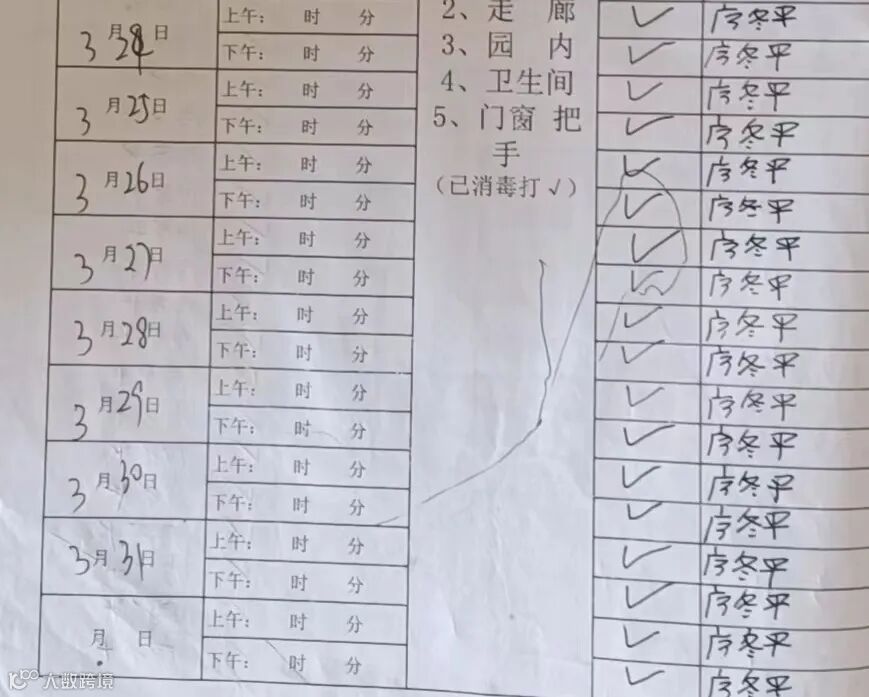 3月24日 上午： 时 分 2、走 廊 ✓ 宁冬平
下午： 时 分 3、园 内 ✓ 宁冬平
3月25日 上午： 时 分 4、卫生间 ✓ 宁冬平
下午： 时 分 5、门窗 把 ✓ 宁冬平
手
3月26日 上午： 时 分 ✓ 宁冬平
下午： 时 分 （已消毒打√） ✓ 宁冬平
3月27日 上午： 时 分 ✓ 宁冬平
下午： 时 分 ✓ 宁冬平
3月28日 上午： 时 分 ✓ 宁冬平
下午： 时 分 ✓ 宁冬平
3月29日 上午： 时 分 ✓ 宁冬平
下午： 时 分 ✓ 宁冬平
3月30日 上午： 时 分 ✓ 宁冬平
下午： 时 分 ✓ 宁冬平
3月31日 上午： 时 分 ✓ 宁冬平
下午： 时 分 ✓ 宁冬平
月 日 上午： 时 分 ✓ 宁冬平
下午： 时 分 ✓ 宁冬平
大数跨境